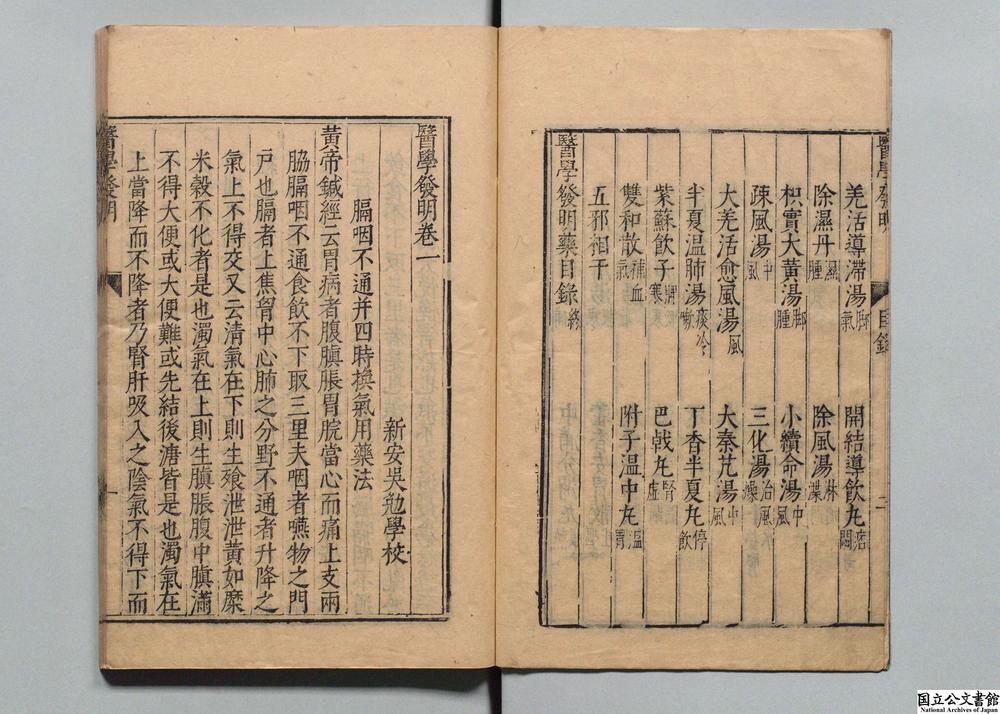 醫學發明 目錄 二
羌活導滯湯脚氣 開結導飲丸痞悶
除濕丹濕腫 除風湯
枳實大黃湯脚腫 小續命湯中風
疎風湯中風 三化湯治風燥
大羌活愈風湯風 大秦艽湯中風
半夏温肺湯痰冷嗽 丁香半夏丸停飲
紫蘇飲子脾寒 巴戟丸腎虛
雙和散補血氣 附子温中丸温胃
五邪相干
醫學發明藥目錄終
醫學發明卷一
新安吳勉學校
膈咽不通并四時換氣用藥法
黃帝鍼經云胃病者腹䐜脹胃脘當心而痛上支兩
脇膈咽不通食飲不下取三里夫咽者嚥物之門
户也膈者上焦胃中心肺之分野不通者升降之
氣上不得交又云清氣在下則生飱泄泄黃如糜
米穀不化者是也濁氣在上則生䐜脹腹中䐜滿
不得大便或大便難或先結後溏皆是也濁氣在
上當降而不降者乃腎肝吸入之陰氣不得下而
醫學發明 一
国立公文書館
National Archives of Japan